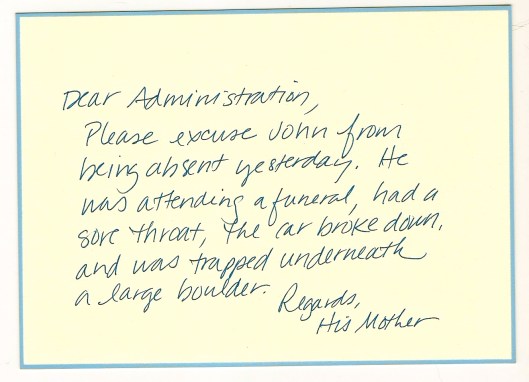 Dear Administration,
Please excuse John from
being absent yesterday. He
was attending a funeral, had a
sore throat, the car broke down,
and was trapped underneath
a large boulder.
Regards,
His Mother